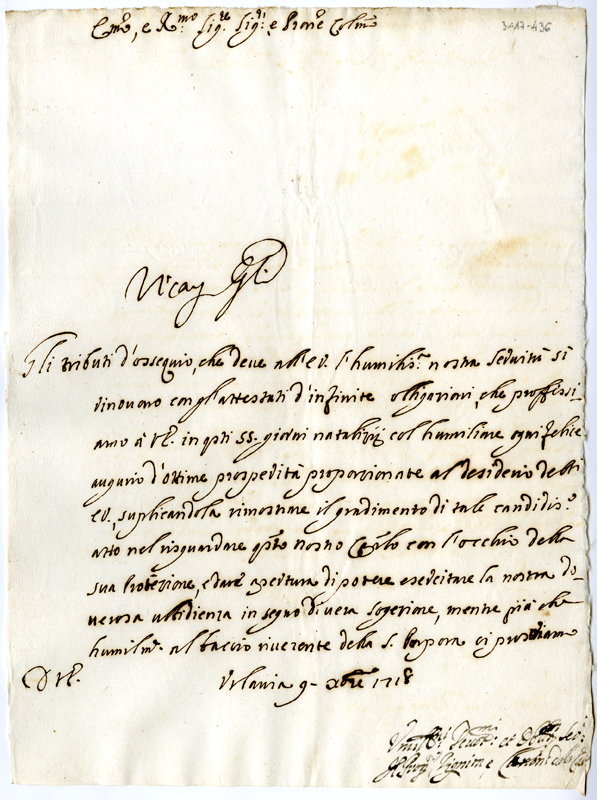 3-17-436
Emo, e Rmo Sigre Sigr: e Prone Colmo
Gli tributi d'ossequio, che deve all'E.V. l'humiliss:a nostra servitù si
rinovano con gl'attestati d'infinite obligationi, che professi-
amo à V.E. in qsti SS. giorni natalizij col humiliare ogni felice
augurio d'ottime prosperità proporzionate al desiderio dell'
E.V., suplicandola rimostrare il gradimento di tale candidiss:o
atto nel risguardare qsto nostro Capitolo con l'occhio della
sua Protezione, e dare apertura di potere esercitare la nostra do-
verosa ubbidienza in segno di vera sogezione, mentre più che
humilmte al baccio riverente della S. Porpora ci prostriamo
D.V.E. Urbania 9 Xbre 1718
Humilmi Devotmi et Obligmi Ser:i